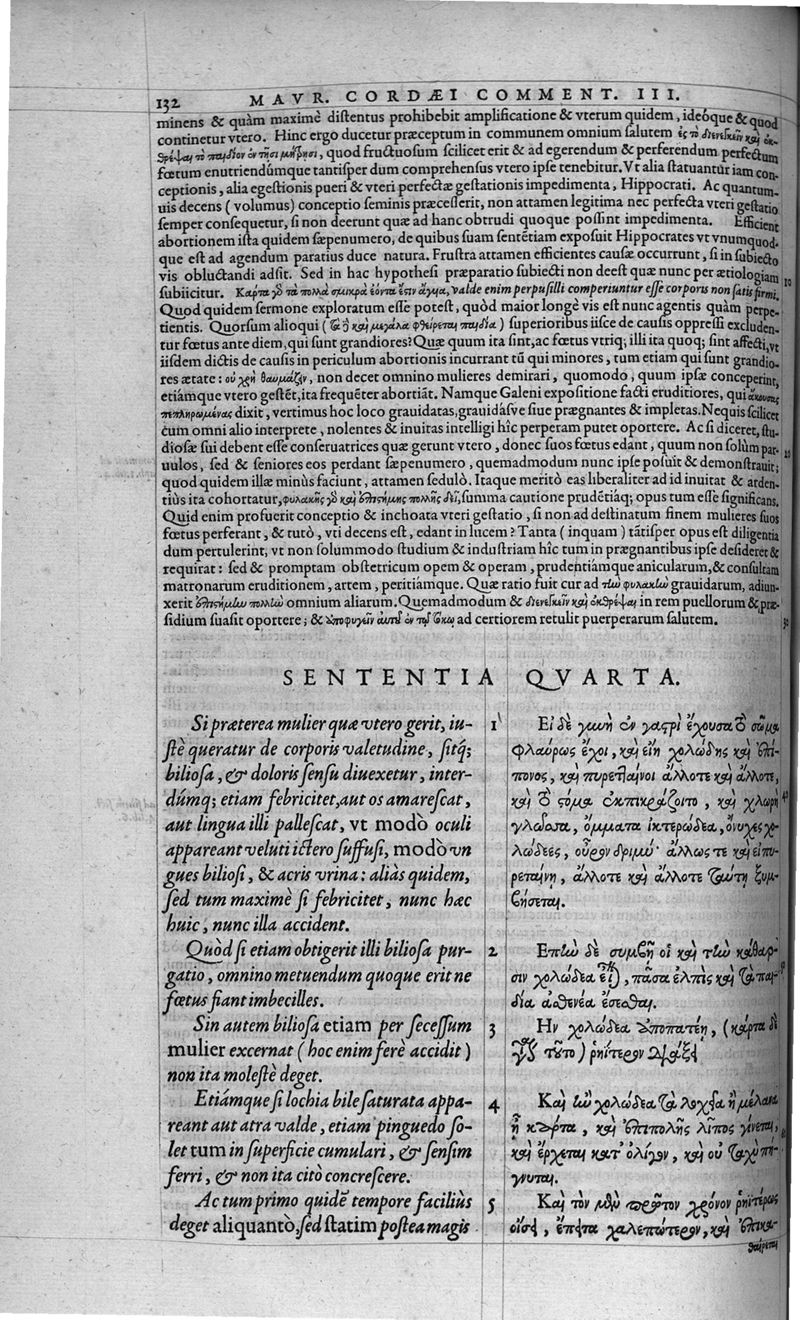 132 MAVR. CORDÆI COMMENT. III.
minens & quàm maximè distentus prohibebit amplificatione & vterum quidem, ideóque & quod
continetur vtero. Hinc ergo ducetur præceptum in communem omnium salutem ἐς τὸ διενεγκεῖν καὶ ἐκ-
θρέψαι τὸ παιδίον ἐν τῇσι μήτρῃσι, quod fructuosum scilicet erit & ad egerendum & perferendum perfectum
fœtum enutriendúmque tantisper dum comprehensus vtero ipse tenebitur. Vt alia statuantur iam con-
ceptionis, alia egestionis pueri & vteri perfectæ gestationis impedimenta, Hippocrati. Ac quantum-
uis decens (volumus) conceptio seminis præcesserit, non attamen legitima nec perfecta vteri gestatio
semper consequetur, si non deerunt quæ ad hanc obtrudi quoque possint impedimenta. Efficient
abortionem ista quidem sæpenumero, de quibus suam sentētiam exposuit Hippocrates vt vnumquod-
que est ad agendum paratius duce natura. Frustra attamen efficientes causæ occurrunt, si in subiecto
vis obluctandi adsit. Sed in hac hypothesi præparatio subiecti non deest quæ nunc per ætiologiam 10
subiicitur. Κάρτα γὰρ τὰ πολλὰ σμικρὰ ἐόντα ἐστὶν ἄγμα, valde enim perpusilli comperiuntur esse corporis non satis firmi.
Quod quidem sermone exploratum esse potest, quòd maior longè vis est nunc agentis quàm perpe-
tientis. Quorsum alioqui (τὰ δὲ καὶ μεγάλα φθείρεται παιδία) superioribus iisce de causis oppressi excluden-
tur fœtus ante diem, qui sunt grandiores? Quæ quum ita sint, ac fœtus vtriq; illi ita quoq; sint affecti, vt
iisdem dictis de causis in periculum abortionis incurrant tū qui minores, tum etiam qui sunt grandio-
res ætate: οὐ χρὴ θαυμάζειν, non decet omnino mulieres demirari, quomodo, quum ipsæ conceperint,
etiámque vtero gestēt, ita frequēter abortiāt. Namque Galeni expositione facti eruditiores, qui ἀκούσας
πεπληρωμένας dixit, vertimus hoc loco grauidatas, grauidásve siue prægnantes & impletas. Nequis scilicet
cum omni alio interprete, nolentes & inuitas intelligi hîc perperam putet oportere. Ac si diceret, stu-
diosæ sui debent esse conseruatrices quæ gerunt vtero, donec suos fœtus edant, quum non solùm par-
uulos, sed & seniores eos perdant sæpenumero, quemadmodum nunc ipse posuit & demonstrauit;
quod quidem illæ minùs faciunt, attamen sedulò. Itaque meritò eas liberaliter ad id inuitat & arden-
tiùs ita cohortatur, φυλακῆς γὰρ καὶ ἐπιστήμης πολλῆς δεῖ, summa cautione prudētiáq; opus tum esse significans.
Quid enim profuerit conceptio & inchoata vteri gestatio, si non ad destinatum finem mulieres suos
fœtus perferant, & tutò, vti decens est, edant in lucem? Tanta (inquam) tātisper opus est diligentia
dum pertulerint, vt non solummodo studium & industriam hîc tum in prægnantibus ipse desideret &
requirat: sed & promptam obstetricum opem & operam, prudentiámque anicularum, & consultam
matronarum eruditionem, artem, peritiámque. Quæ ratio fuit cur ad τὴν φυλακὴν grauidarum, adiun-
xerit ἐπιστήμην πολλὴν omnium aliarum. Quemadmodum & διενεγκεῖν καὶ ἐκθρέψαι in rem puellorum & præ-
sidium suasit oportere; & ἀποφυγεῖν αὐτὰς ἐν τῷ τόκῳ ad certiorem retulit puerperarum salutem.
SENTENTIA QVARTA.
Si præterea mulier quæ vtero gerit, iu-
stè queratur de corporis valetudine, sitq;
biliosa, & doloris sensu diuexetur, inter-
dúmq; etiam febricitet, aut os amarescat,
aut lingua illi pallescat, vt modò oculi
appareant veluti ictero suffusi, modò vn
gues biliosi, & acris vrina: aliàs quidem,
sed tum maximè si febricitet, nunc hæc
huic, nunc illa accident.
Quòd si etiam obtigerit illi biliosa pur-
gatio, omnino metuendum quoque erit ne
fœtus fiant imbecilles.
Sin autem biliosa etiam per secessum
mulier excernat (hoc enim ferè accidit)
non ita molestè deget.
Etiámque si lochia bile saturata appa-
reant aut atra valde, etiam pinguedo so-
let tum in superficie cumulari, & sensim
ferri, & non ita citò concrescere.
Ac tum primo quidē tempore faciliùs
deget aliquantò, sed statim postea magis
1 Εἰ δὲ γυνὴ ἐν γαστρὶ ἔχουσα τὸ σῶμα
φλαύρως ἔχοι, καὶ εἴη χολώδης καὶ ἐπί-
πονος, καὶ πυρεταίνοι ἄλλοτε καὶ ἄλλοτε,
καὶ τὸ στόμα ἐκπικράζοιτο, καὶ χλωρὴ
γλῶσσα, ὄμματα ἰκτερώδεα, ὄνυχες χο-
λώδεες, οὖρον δριμύ· ἄλλως τε καὶ εἰ πυ-
ρεταίνῃ, ἄλλοτε καὶ ἄλλοτε ταύτῃ ξυμ-
βήσεται.
2 Ἐπὴν δὲ συμβῆ οἱ καὶ τὴν κάθαρ-
σιν χολώδεα εἶναι, πᾶσα ἐλπὶς καὶ τὰ παι-
δία ἀσθενέα ἔσεσθαι.
3 Ην χολώδεα ἀποπατέῃ, (κάρτα δὲ
τοῦτο) ῥηίτερον
4 Καὶ ἢν χολώδεα τὰ λοχεῖα ἢ μέλανα
ἢ κάρτα, καὶ ἐπιπολῆς λίπος γίνεται,
καὶ ἔρχεται κατ' ὀλίγον, καὶ οὐ ταχὺ πή-
γνυται.
5 Καὶ τὸν μὲν πρῶτον χρόνον ῥηιτέρως
οἴσει, ἔπειτα χαλεπώτερον, καὶ